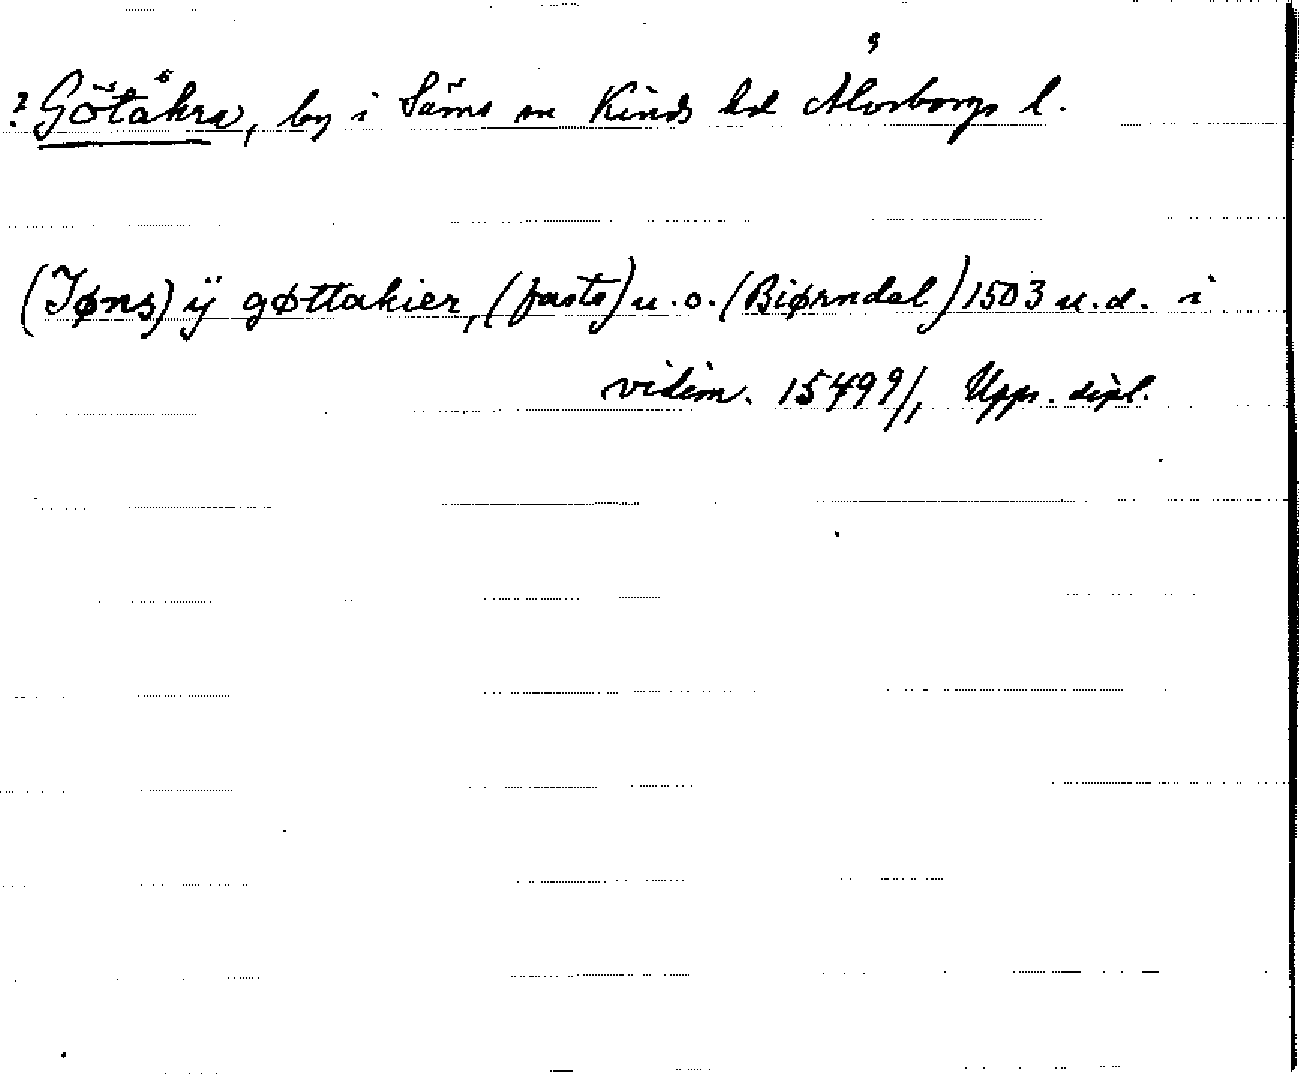 ? Götåkra, by i Säms sn Kinds hd Älvsborgs l.
(Jøns) ÿ gøttakier, (fasto) u. o. (Biørndal) 1503 u. d. i
vidim. 1549 9/1, Upps. dipl.